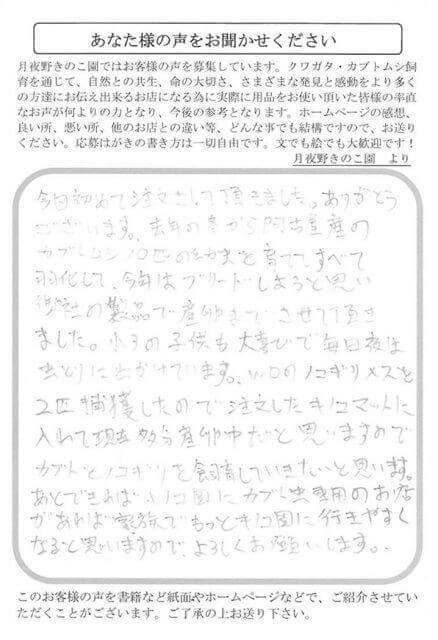 あなた様の声をお聞かせください
月夜野きのこ園ではお客様の声を募集しています。クワガタ・カブトムシ飼
育を通じて、自然との共生、命の大切さ、さまざまな発見と感動をより多く
の方達にお伝え出来るお店になる為に実際に用品をお使い頂いた皆様の率直
なお声が何よりの力となり、今後の参考となります。ホームページの感想、
良い所、悪い所、他のお店との違い等、どんな事でも結構ですので、お送り
ください。応募はがきの書き方は一切自由です。文でも絵でも大歓迎です！
月夜野きのこ園　より
今回初めて注文させて頂きました。ありがとう
ございます。去年の冬から阿古産の
カブトムシ10匹の幼虫を育ててすべて
羽化して、今年はブリードしようと思い
御社の製品で産卵までさせて頂き
ました。小3の子供も大喜びで毎日夜は
虫とりに出かけています。WDのノコギリメスを
2匹捕獲したので注文したキノコマットに
入れて現在多分産卵中だと思いますので
カブトとノコギリを飼育していきたいと思います。
あとできればキノコ園にカブト虫専用のお店
があれば家族でもっとキノコ園に行きやすく
なると思いますので、よろしくお願いします。
このお客様の声を書籍など紙面やホームページなどで、ご紹介させてい
ただくことがございます。ご了承の上お送り下さい。